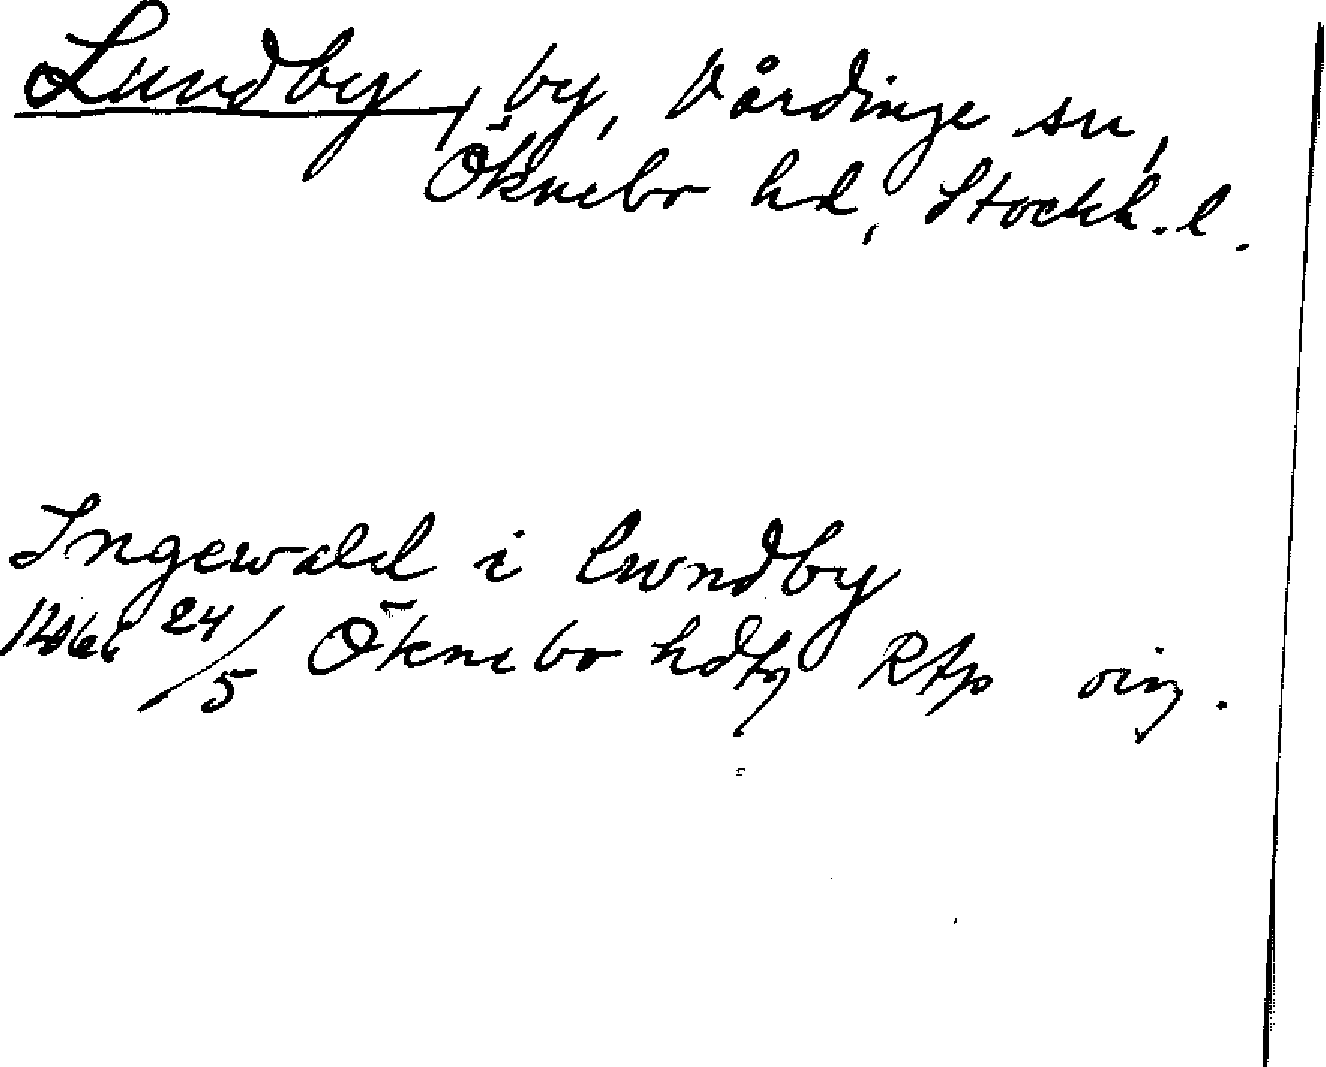 Lundby, by, Vårdinge sn,
Öknebo hd, Stockh. l.
Ingewald i lwndby
24/5 Öknebo hdtg RAp orig.